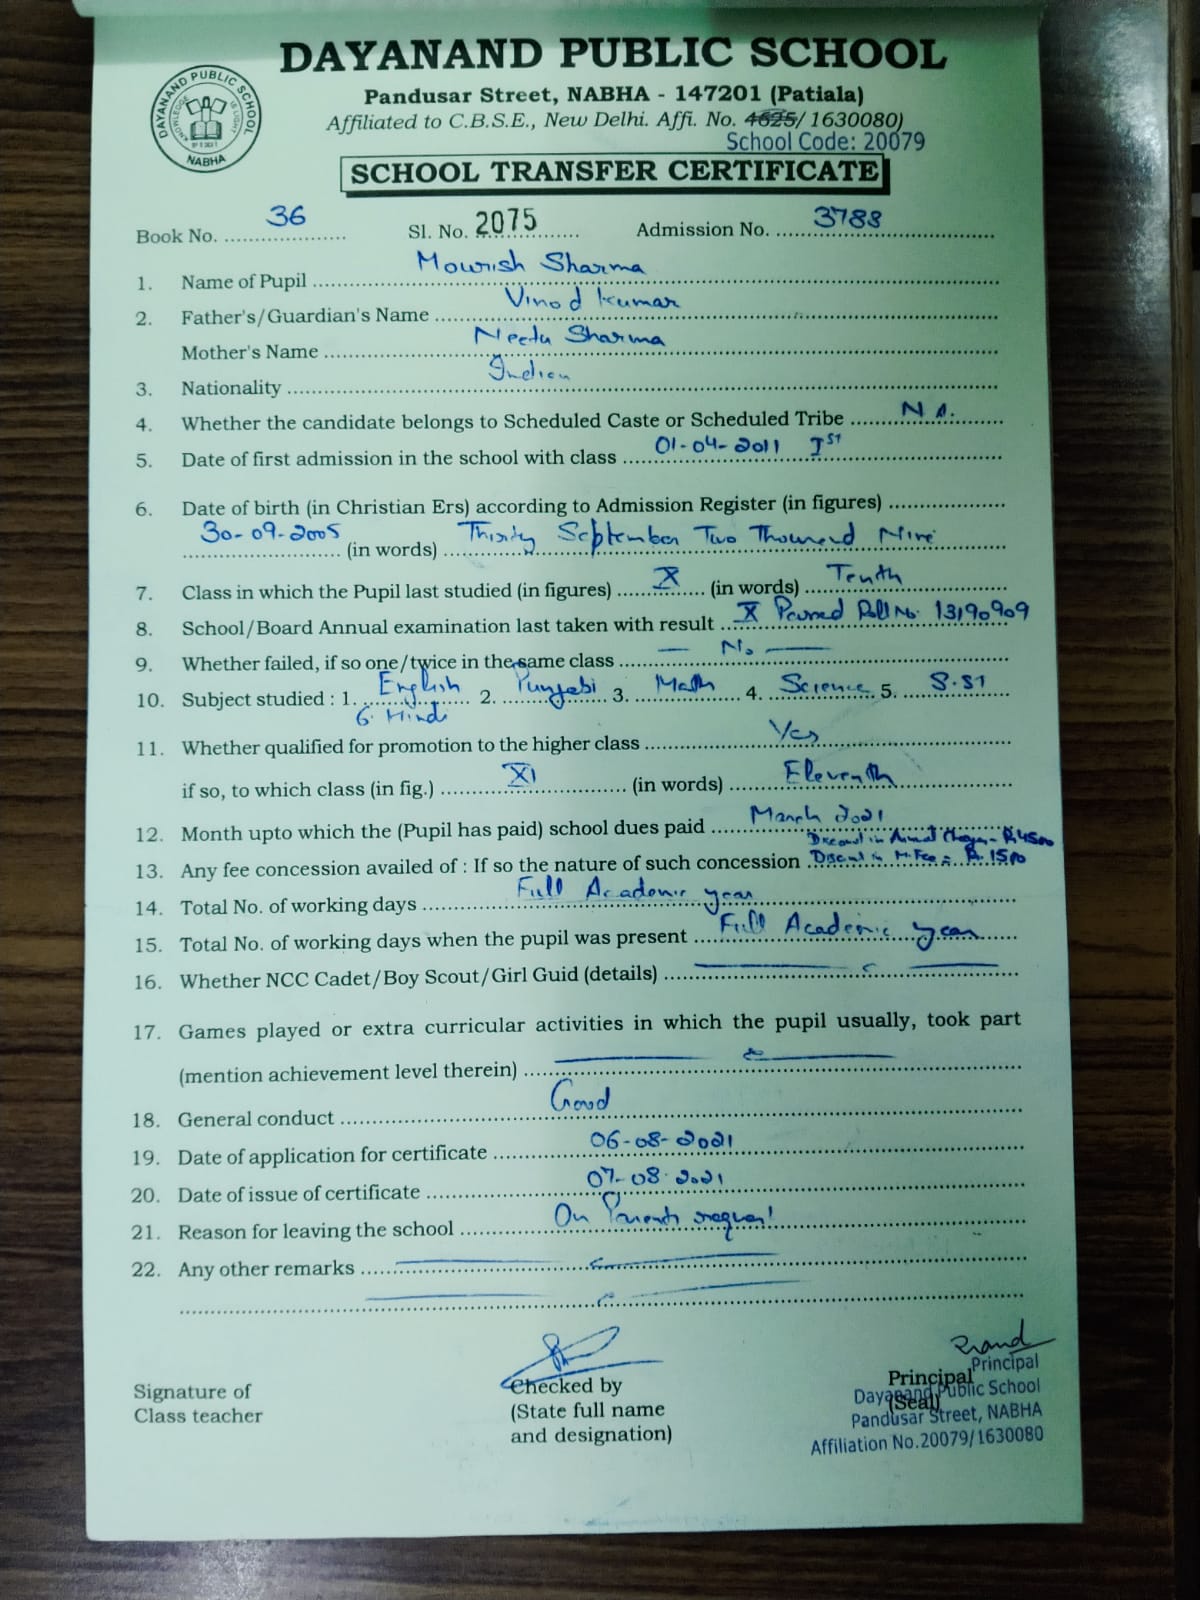 DAYANAND PUBLIC SCHOOL
Pandusar Street, NABHA - 147201 (Patiala)
Affiliated to C.B.S.E., New Delhi. Affi. No. 4625/ 1630080)
School Code: 20079
DAYANAND PUBLIC SCHOOL
NABHA
SCHOOL TRANSFER CERTIFICATE
Book No. 36 Sl. No. 2075 Admission No. 3788
1. Name of Pupil Mourish Sharma
2. Father's/Guardian's Name Vinod Kumar
Mother's Name Neetu Sharma
3. Nationality Indian
4. Whether the candidate belongs to Scheduled Caste or Scheduled Tribe N A.
5. Date of first admission in the school with class 01-04-2011 Ist
6. Date of birth (in Christian Ers) according to Admission Register (in figures)
30-09-2005 (in words) Thirty September Two Thousand Five
7. Class in which the Pupil last studied (in figures) X (in words) Tenth
8. School/Board Annual examination last taken with result X Passed Roll No. 13190909
9. Whether failed, if so one/twice in the same class — No —
10. Subject studied : 1. English 2. Punjabi 3. Math 4. Science 5. S.St
6. Hindi
11. Whether qualified for promotion to the higher class Yes
if so, to which class (in fig.) XI (in words) Eleventh
12. Month upto which the (Pupil has paid) school dues paid March 2021
Discount in Annual Charges - Rs 4500
13. Any fee concession availed of : If so the nature of such concession Discount in M. Fee = Rs. 1500
14. Total No. of working days Full Academic year
15. Total No. of working days when the pupil was present Full Academic year
16. Whether NCC Cadet/Boy Scout/Girl Guid (details)
17. Games played or extra curricular activities in which the pupil usually, took part
(mention achievement level therein)
18. General conduct Good
19. Date of application for certificate 06-08-2021
20. Date of issue of certificate 07-08-2021
21. Reason for leaving the school On Parents request
22. Any other remarks
Signature of
Class teacher
Checked by
(State full name
and designation)
Principal
(Seal)
Principal
Dayanand Public School
Pandusar Street, NABHA
Affiliation No.20079/1630080